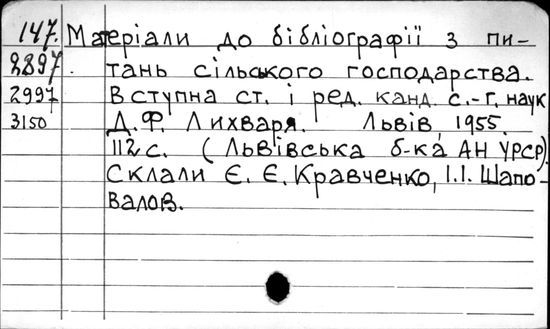 147. Матеріали до бібліографії з пи-
2897. тань сільського господарства.
2997 Вступна ст. і ред. канд. с.-г. наук
3150 Д. Ф. Лихваря. Львів, 1955.
112 с. (Львівська б-ка АН УРСР)
Склали Є. Є. Кравченко, І. І. Шапо-
валов.